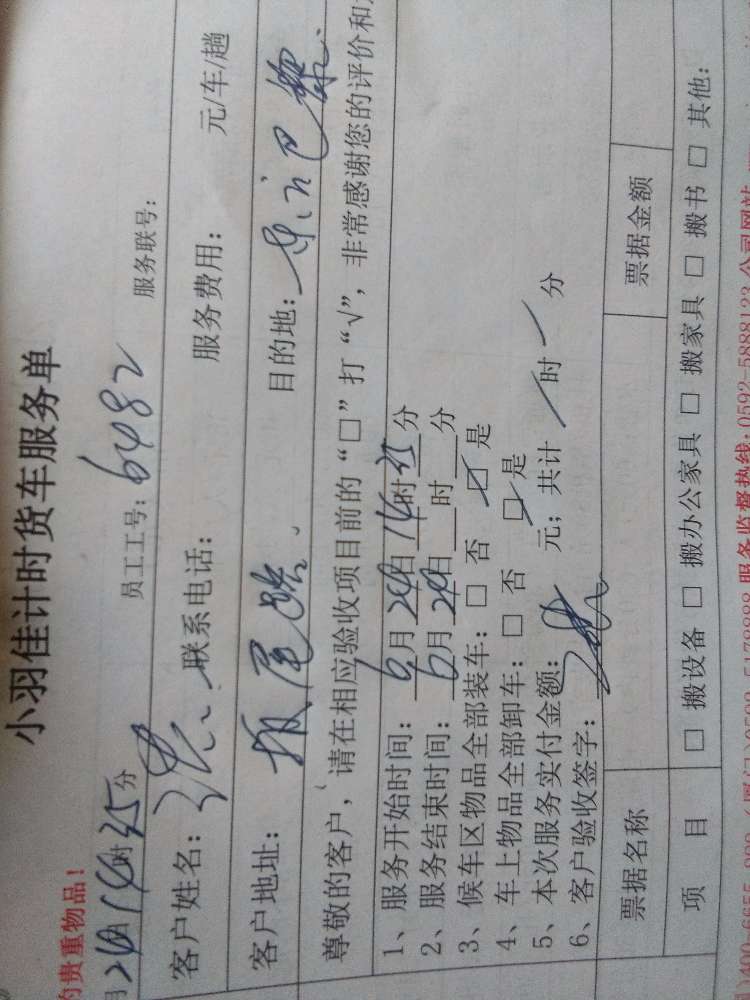 的贵重物品！
小羽佳计时货车服务单
月24日14时35分 员工工号：6482 服务联号：
客户姓名： 联系电话： 服务费用： 元/车/趟
客户地址： 目的地：
尊敬的客户，请在相应验收项目前的“□”打“√”，非常感谢您的评价和
1、服务开始时间：6月24日14时35分
2、服务结束时间：6月24日 时 分
3、候车区物品全部装车：□ 否 ☑ 是
4、车上物品全部卸车：□ 否 ☑ 是
5、本次服务实付金额： 元；共计 / 时 / 分
6、客户验收签字：
票据名称 票据金额
项 目 □ 搬设备 □ 搬办公家具 □ 搬家具 □ 搬书 □ 其他：
服务监督热线:0592-5888123 公司网站